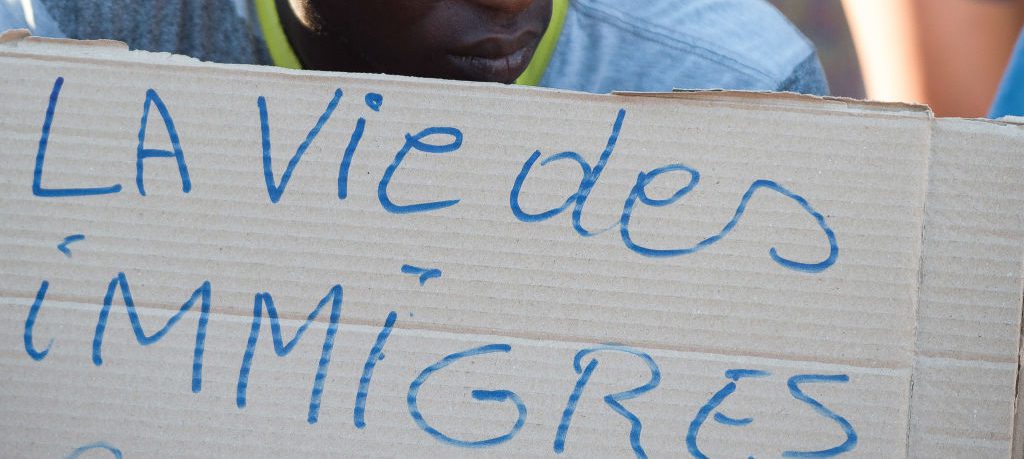 LA Vie des
iMMiGRES